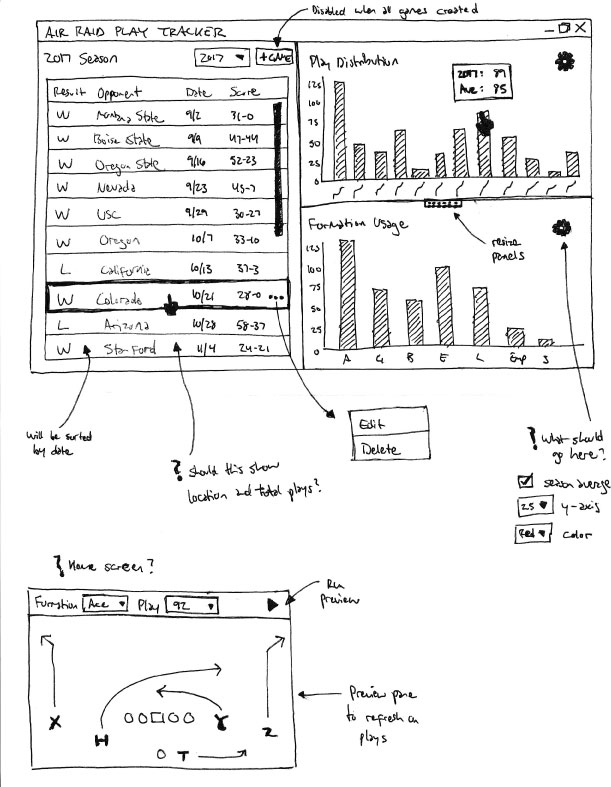 Disabled when all games created
AIR RAID PLAY TRACKER
2017 Season
2017
+GAME
Result Opponent Date Score
W Montana State 9/2 31-0
W Boise State 9/9 47-44
W Oregon State 9/16 52-23
W Nevada 9/23 45-7
W USC 9/29 30-27
W Oregon 10/7 33-10
L California 10/13 37-3
W Colorado 10/21 28-0 ...
L Arizona 10/28 58-37
W Stanford 11/4 24-21
Play Distribution
125
100
75
50
25
0
2017: 89
Ave: 85
resize
panels
Formation Usage
125
100
75
50
25
0
A G B E L Emp J
will be sorted
by date
? should this show
location and total plays?
Edit
Delete
? What should
go here?
season average
25 y-axis
Red color
? Home screen?
Formation Ace Play 92
Run
preview
X H Y Z
T
Preview pane
to refresh on
plays